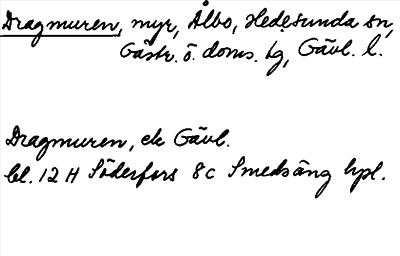 Dragmuren, myr, Ålbo, Hedesunda sn,
Gästr. ö. doms. hg, Gävl. l.
Dragmuren, ek Gävl.
bl. 12 H Söderfors 8c Smedsäng hpl.